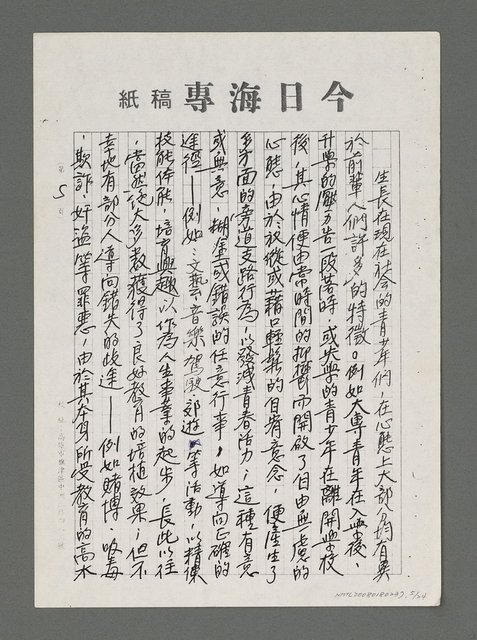 今日海專 稿紙
生長在現在社會的青少年們，在心態上大部分均有異
於前輩人們許多的特徵。例如大專青年在入學後，
升學的壓力告一段落時，或失學的青少年在離開學校
後，其心情便由常時間的抑鬱而開啟了自由無慮的
心態，由於放縱或藉口輕鬆的自宥意念，便產生了
多方面的旁道支路行為，以發洩青春活力；這種有意
或無意，糊塗或錯誤的任意行事，如導向正確的
途徑——例如：文藝音樂駕駛郊遊等活動，以精練
技能体能，培育興趣以作為人生事業的起步，長此以往
，當然從大多數獲得了良好教育的培植效果；但不
幸地有部分人導向錯失的歧途——例如賭博、吸毒
、欺詐、奸盜等罪惡，由於其本身所受教育的高水
第 5 頁
NMTL20080180297. 5/24